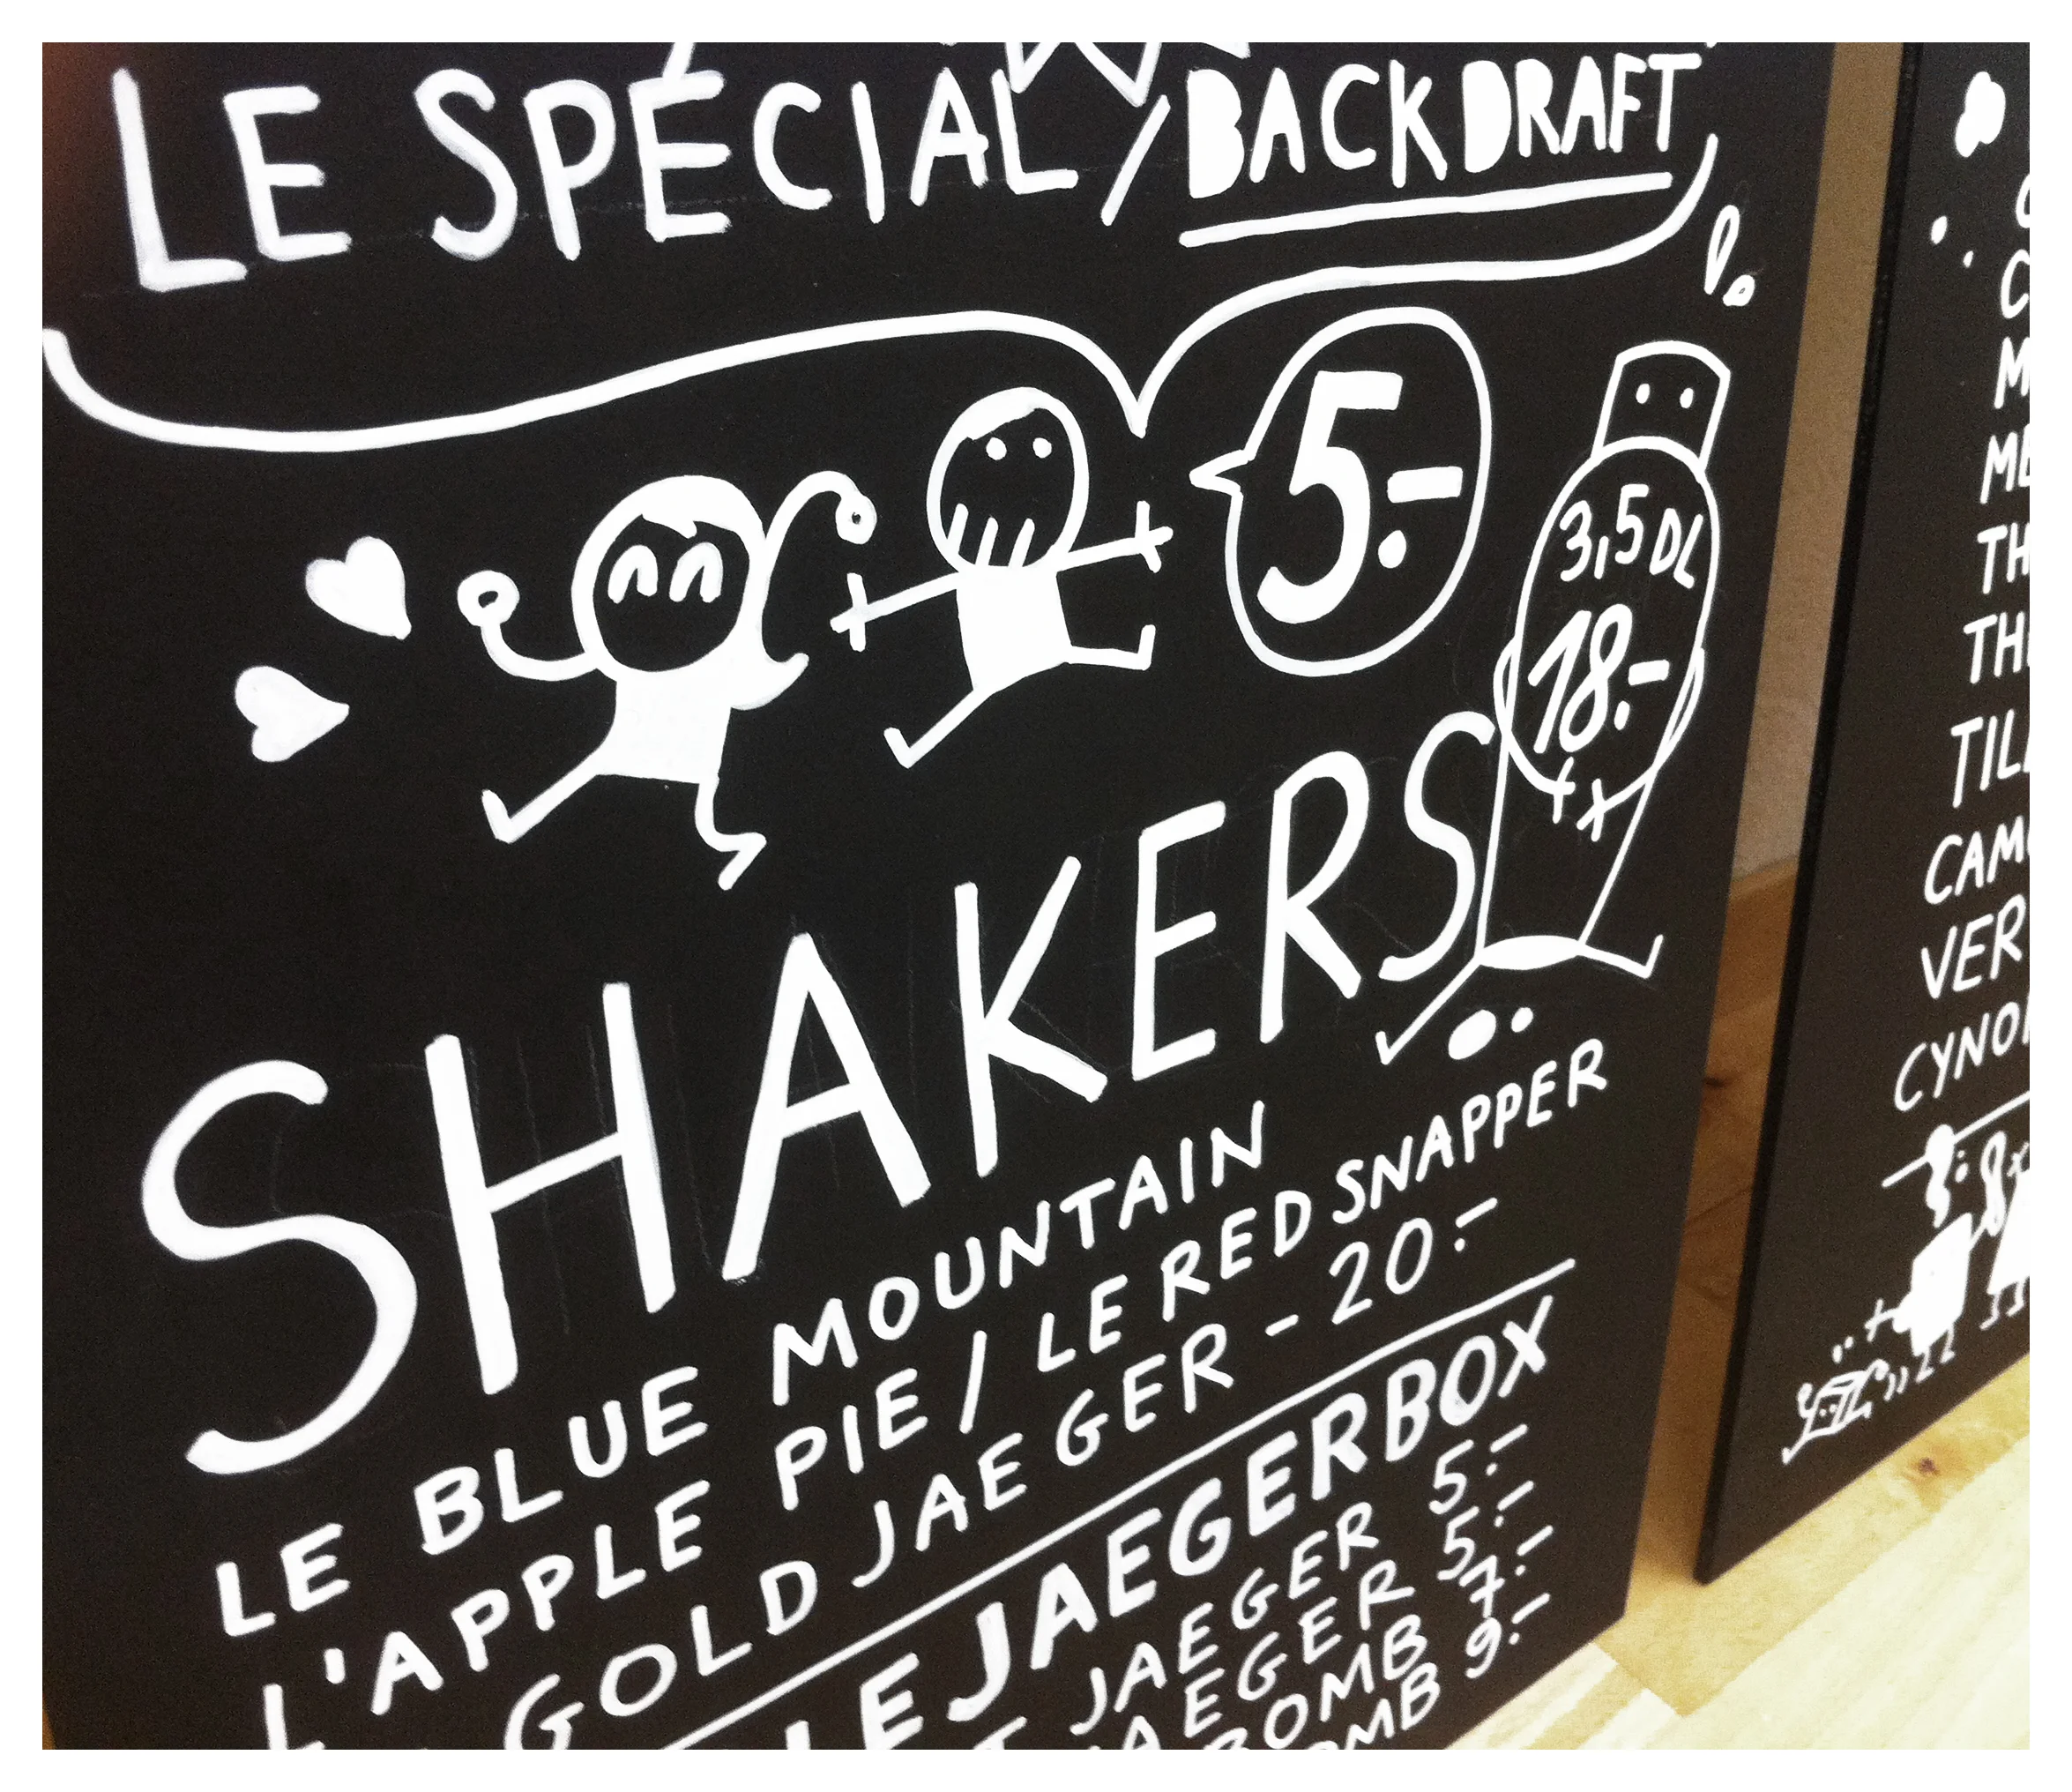 LE SPÉCIAL / BACKDRAFT
5.-
3,5 DL
18.-
SHAKERS
LE BLUE MOUNTAIN
L'APPLE PIE / LE RED SNAPPER
GOLD JAEGER - 20.-
LE JAEGERBOX
JAEGER 5.-
JAEGER 5.-
BOMB 7.-
BOMB 9.-